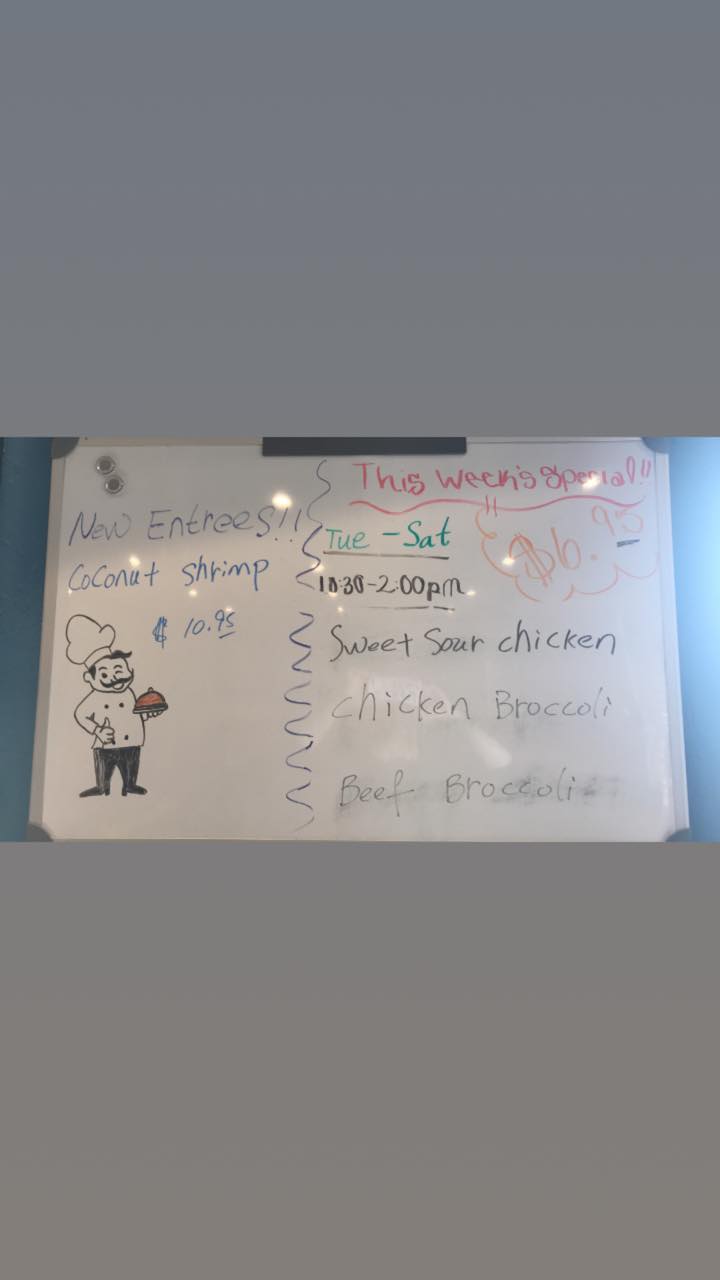 New Entrees!!
Coconut shrimp
$ 10.95
This Week's Special!!
$6.95
Tue - Sat
10:30-2:00pm
Sweet Sour chicken
chicken Broccoli
Beef Broccoli